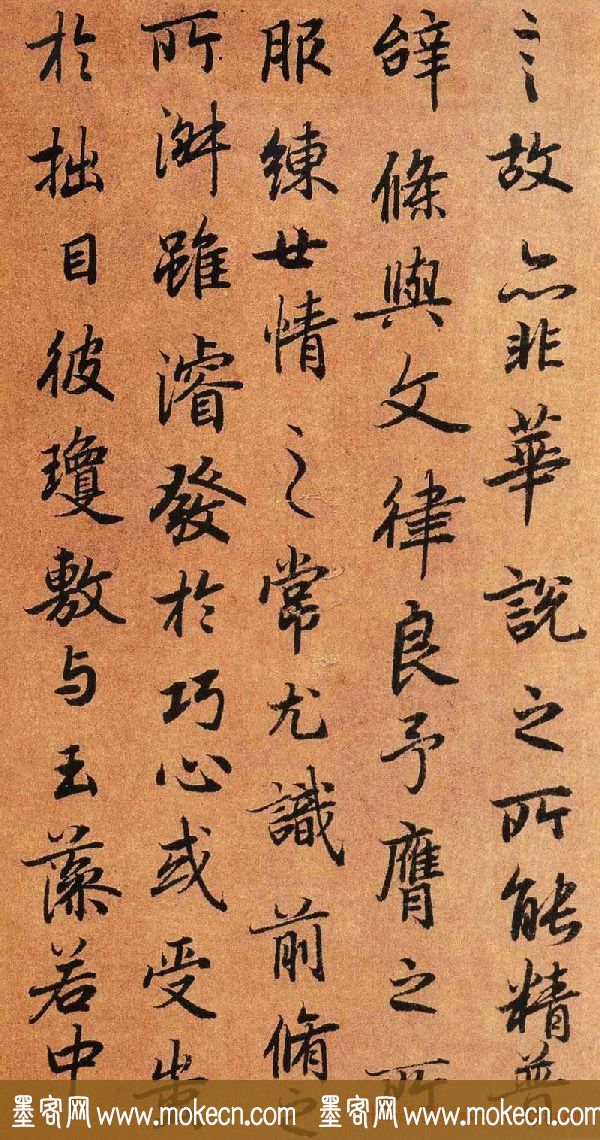 之故亦非華說之所能精普
辝條與文律良予膺之所
服練世情之常尤識前脩之
所淑雖濬發於巧心或受蚩
於拙目彼瓊敷与玉藻若中
墨客网 www.mokecn.com 墨客网 www.mokecn.com